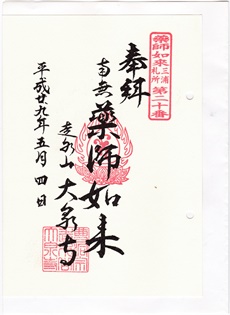 藥師如来
三浦
札所
第二十番
奉拝
南無薬師如来
走水山 大泉寺
平成廿九年五月四日